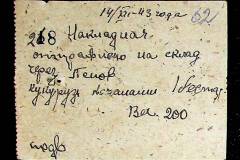 14/XII-43 года 62
218 Накладная
отправлено на склад
через Попов
кукуруз початками 1 вагон
Вес. 200